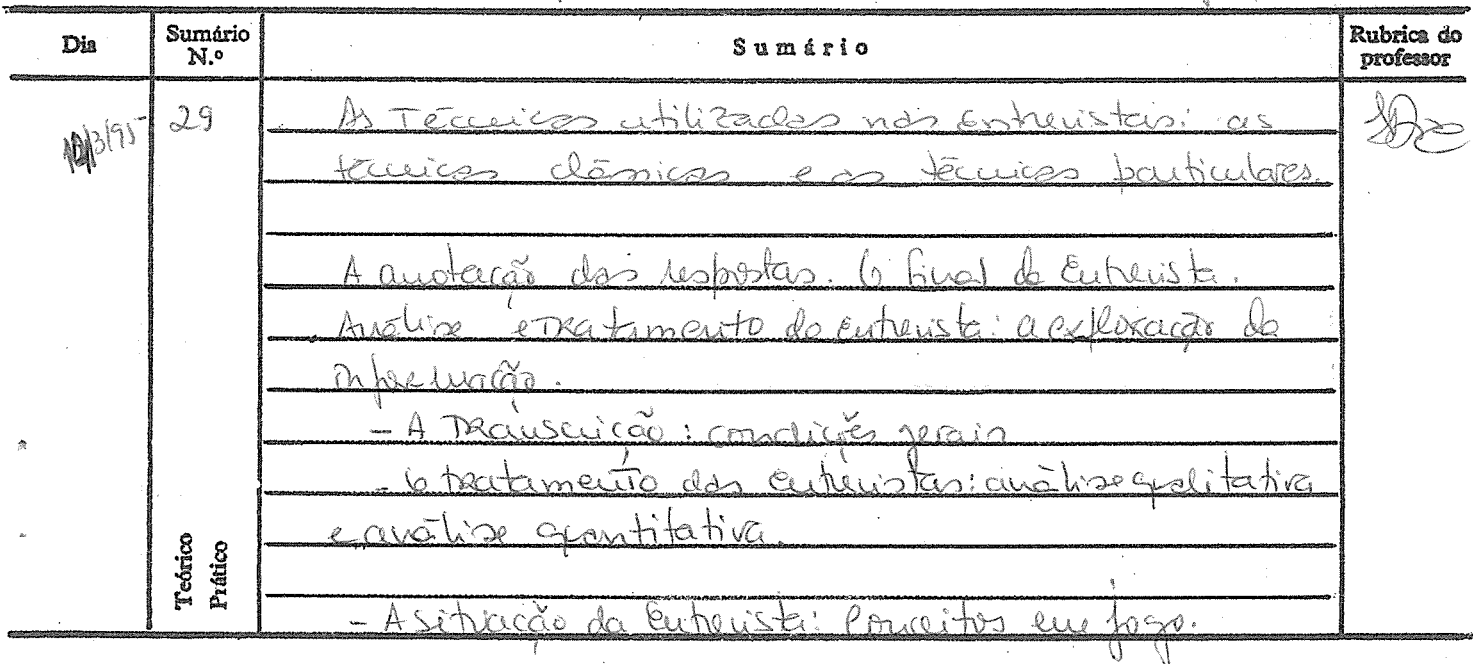 Dia Sumário N.º Sumário Rubrica do professor
/3/95 29 As Técnicas utilizadas nas Entrevistas: as
técnicas clássicas e as técnicas particulares.
A anotação das respostas. O final da Entrevista.
Análise e Tratamento da entrevista: a exploração da
informação.
- A Transcrição: condições gerais
- O tratamento das entrevistas: análise qualitativa
e análise quantitativa.
Teórico
Prático
- A situação da Entrevista: Conceitos em jogo.